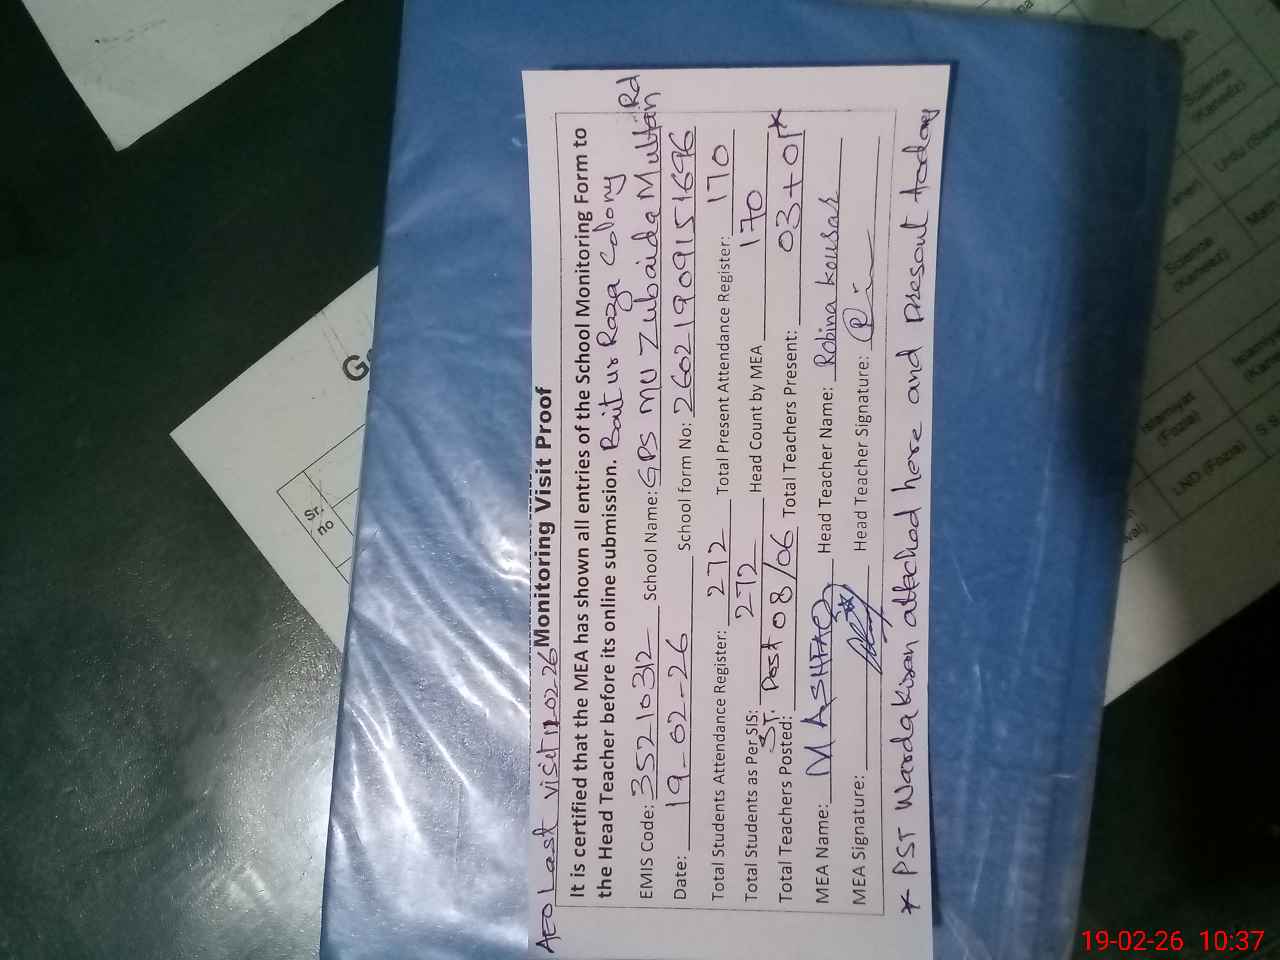 AEO Last visit 12-02-26 Monitoring Visit Proof
It is certified that the MEA has shown all entries of the School Monitoring Form to
the Head Teacher before its online submission. Bait ur Raza Colony
EMIS Code: 35210312 School Name: GPS MU Zubaida Multan Rd
Date: 19-02-26 School form No: 26021909151696
Total Students Attendance Register: 272 Total Present Attendance Register: 170
Total Students as Per SIS: 272 Head Count by MEA 170
Total Teachers Posted: ST. Post 08/06 Total Teachers Present: 03+01*
MEA Name: M ASHFAQ Head Teacher Name: Robina Kousar
MEA Signature: Head Teacher Signature:
* PST Warda Kiran attached here and Present today
Sr.
no
Science
(Kanwal)
Urdu
Science
(Kanwal)
Islamiyat
(Fozia)
LND (Fozia)
19-02-26 10:37